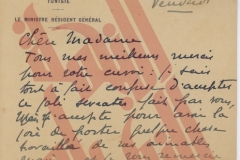 TUNISIE
LE MINISTRE RÉSIDENT GÉNÉRAL
Vendredi
Chère Madame
Tous mes meilleurs mercis
pour votre envoi : je suis
tout à fait confuse d'accepter
ce joli sweater fait par vous,
mais j'accepte pour avoir la
joie de porter quelque chose
travaillé de vos aimables